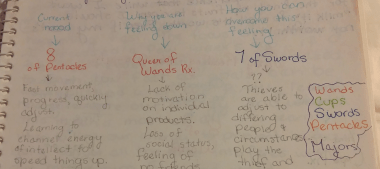 Current
mood
Why you are
feeling down
How you can
overcome this
feeling
8
of Pentacles
Queen of
Wands Rx.
7 of Swords
??
Fast movement,
progress, quickly
Learning to
channel energy
of intellect to
speed things up.
Lack of
motivation
on individual
products.
Loss of
social status,
feeling of
no friends
Thieves
are able to
adjust to
differing
people &
circumstances
play the
thief and
Wands
Cups
Swords
Pentacles
Majors